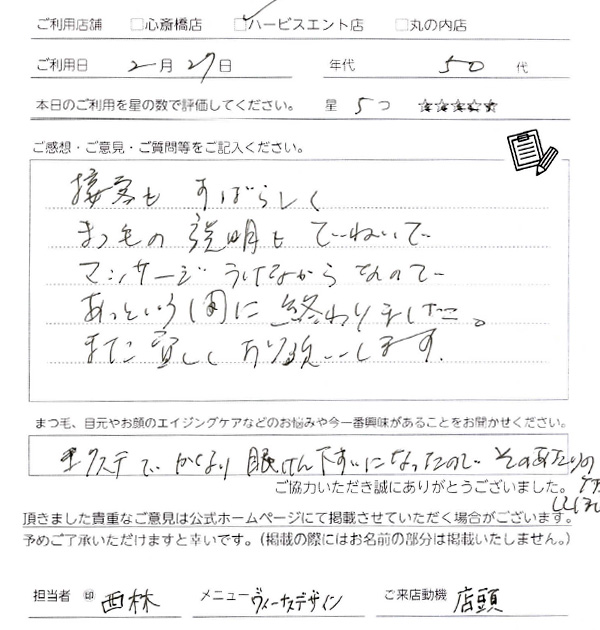 ご利用店舗 □心斎橋店 ☑ハービスエント店 □丸の内店
ご利用日 2月27日 年代 50代
本日のご利用を星の数で評価してください。 星 5つ ☆☆☆☆☆
ご感想・ご意見・ご質問等をご記入ください。
接客も すばらしく
まつ毛の説明も てーねいで
マッサージ うけながらなので
あっという間に 終わりました。
また宜しくお願いします。
まつ毛、目元やお顔のエイジングケアなどのお悩みや今一番興味があることをお聞かせください。
エクステで かなり 眼けん下すいになったので そのあたりの
ご協力いただき誠にありがとうございました。
頂きました貴重なご意見は公式ホームページにて掲載させていただく場合がございます。
予めご了承いただけますと幸いです。(掲載の際にはお名前の部分は掲載いたしません。)
担当者 印 西林 メニュー ヴィーナスデザイン ご来店動機 店頭